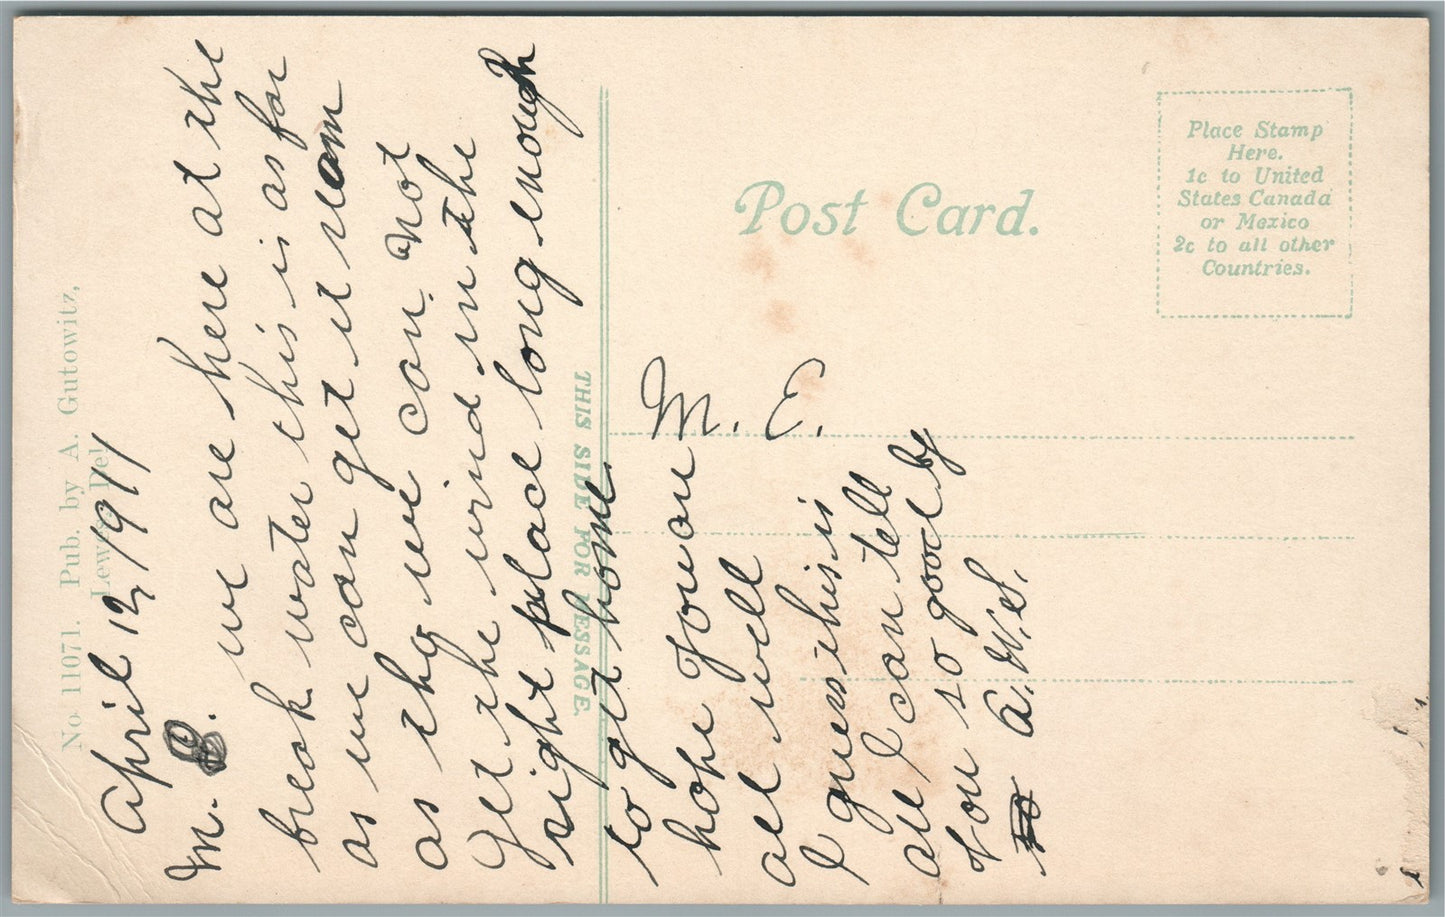 No. 11071. Pub. by A. Gutowitz,
Lewes, Del.
April 12, 1911
M. E. we are here at the
break water this is as far
as we can get it
as thg we can not
Get the wind in the
right place long enough
to get home
hope You are
all well
I guess this is
all I can tell
You so good by
A. W. S.
THIS SIDE FOR MESSAGE.
Post Card.
Place Stamp
Here.
1c to United
States Canada
or Mexico
2c to all other
Countries.
M. E.